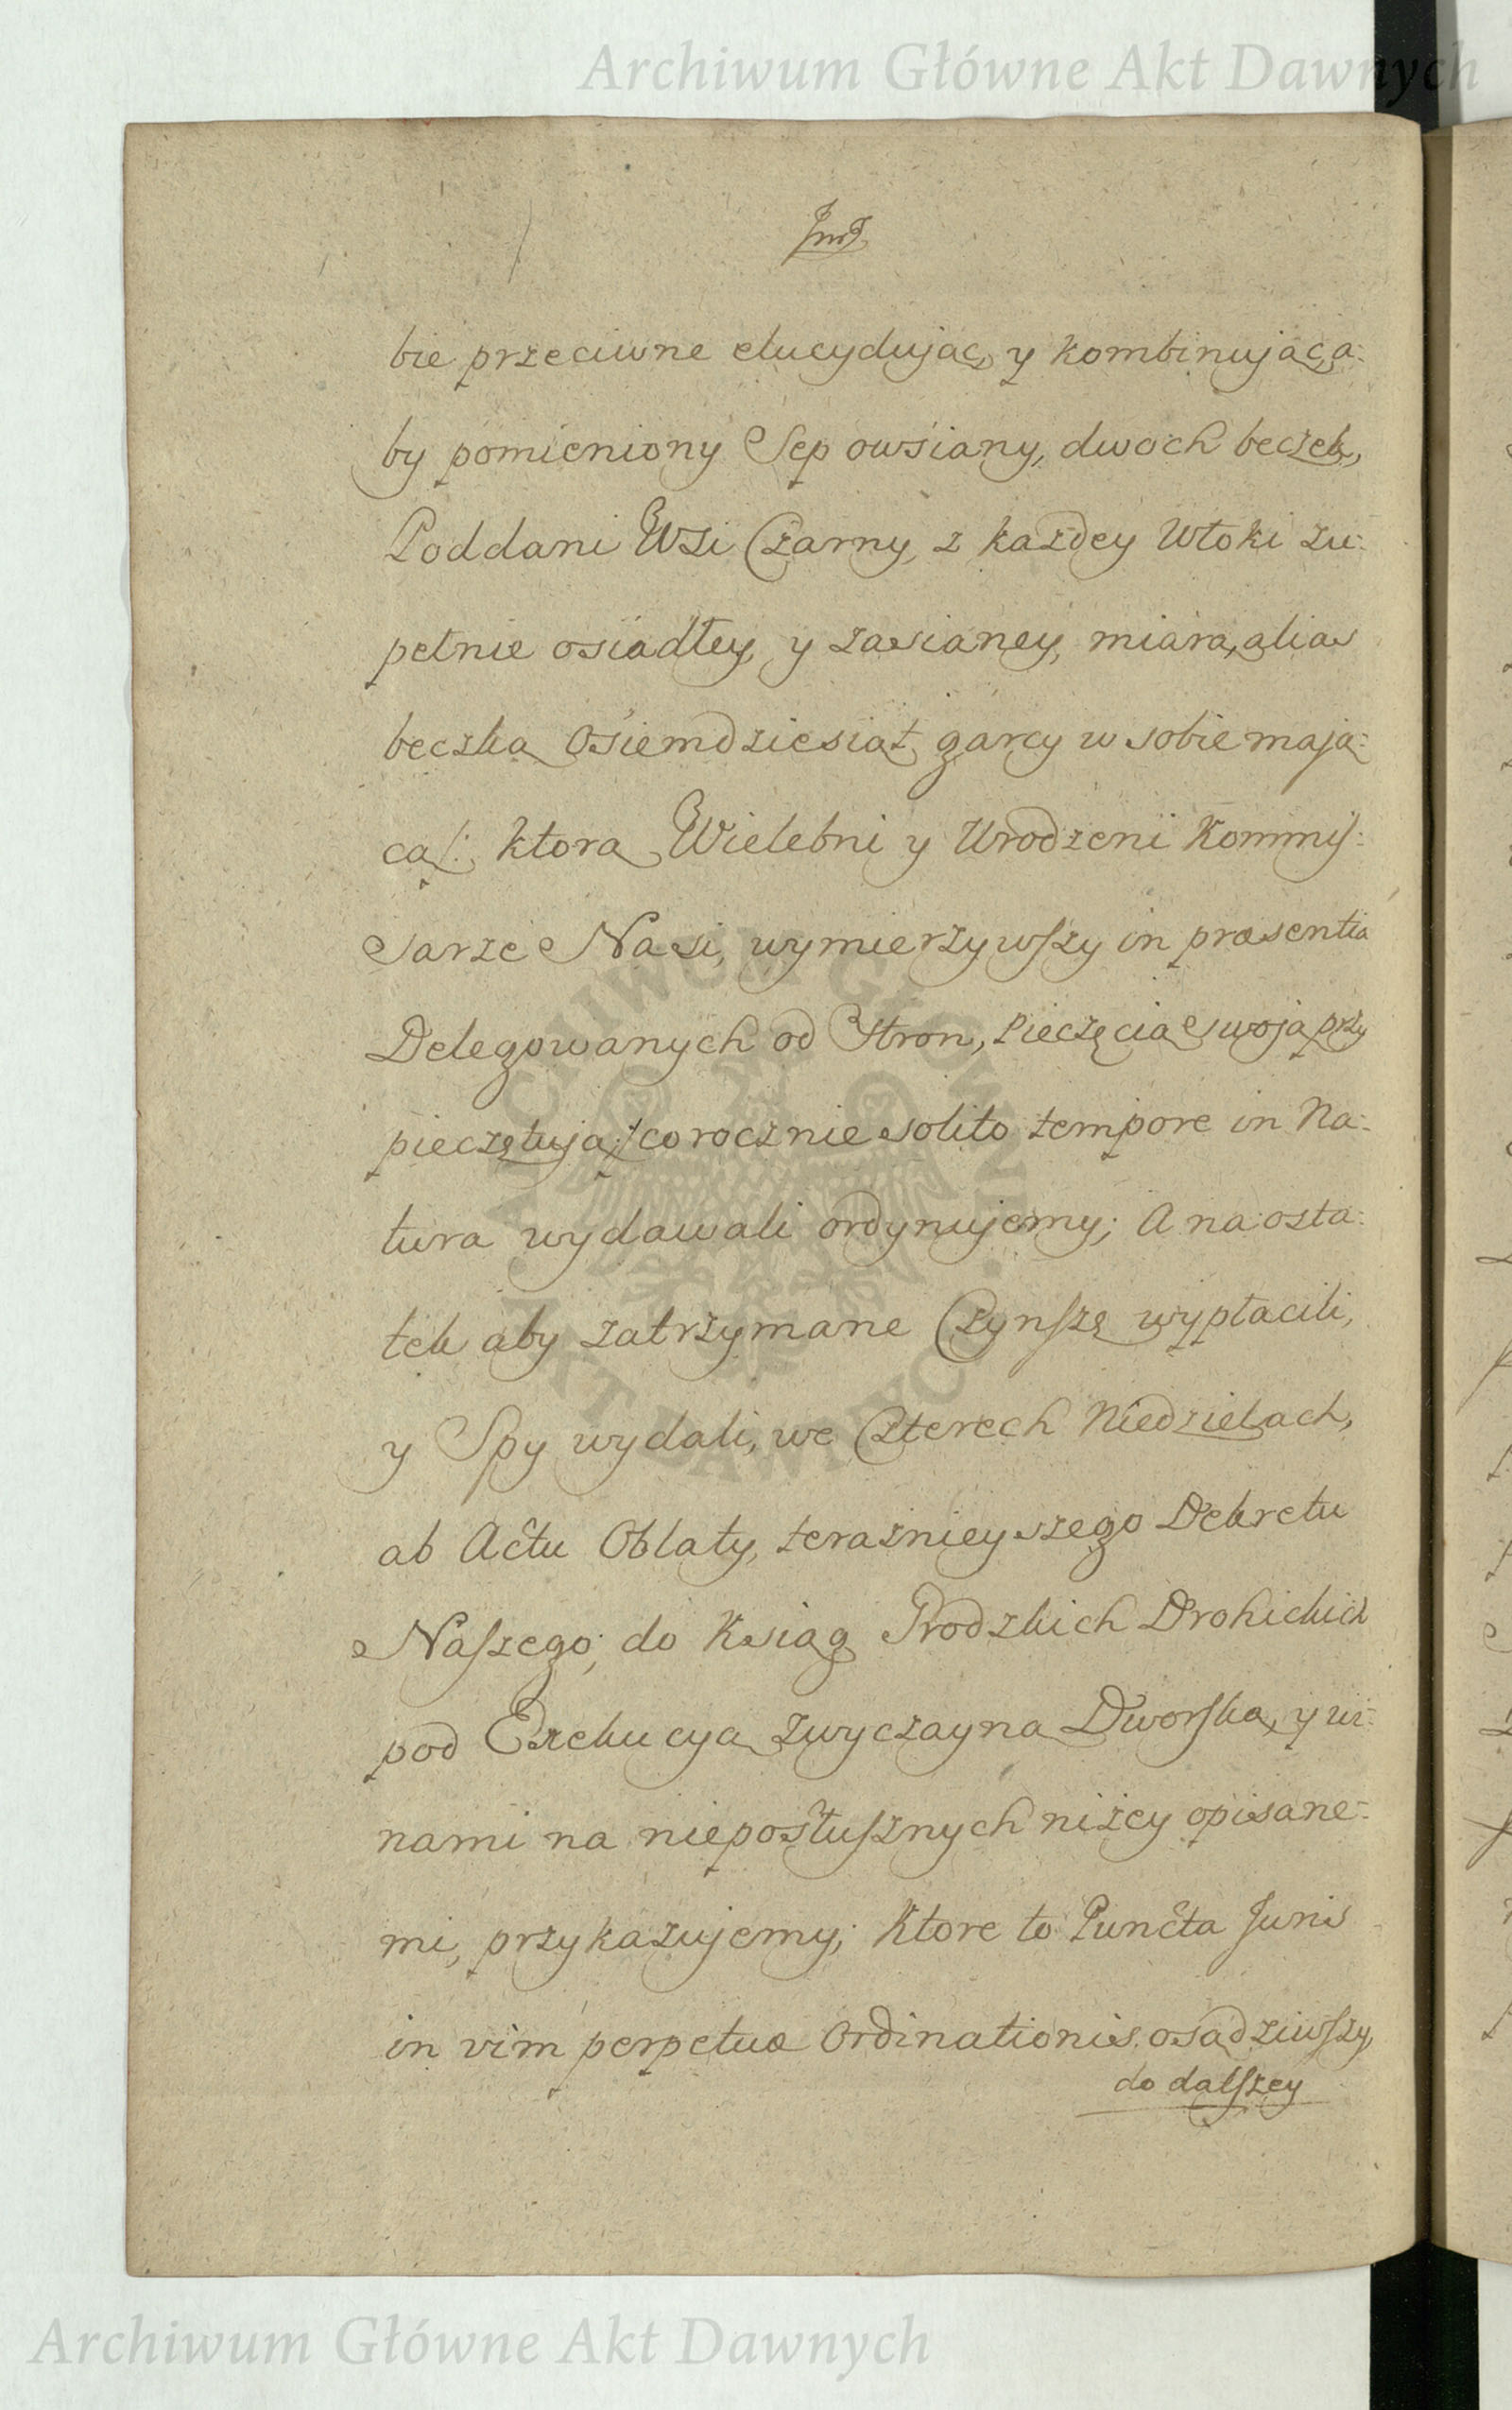 Archiwum Główne Akt Dawnych
bie przeciwne elucydując, y kombinując, a:
by pomieniony Sep owsiany, dwoch beczek,
Poddani Wsi Czarny, z każdey Włoki zu:
pełnie osiadłey, y zasianey, miarą, alias
beczką osiemdziesiąt garcy w sobie mają:
cą/: ktorą Wielebni y Urodzeni Kommis:
sarze Nasi, wymierzywszy in præsentia
Delegowanych od Stron, Pieczęcią swoją przy
pieczętują:/ corocznie solito tempore in Na:
tura wydawali ordynujemy; A na osta:
tek aby zatrzymane Czynsze wypłacili,
y Spy wydali, we Czterech Niedzielach,
ab Actu Oblaty, teraznieyszego Dekretu
Naszego; do Ksiąg Grodzkich Drohickich
pod Exekucyą zwyczayną Dworską, y wi:
nami na nieposłusznych niżey opisane:
mi, przykazujemy; Ktore to Puncta Juris
in vim perpetuæ Ordinationis osądziwszy,
do dalszey
ARCHIWUM GŁÓWNE
AKT DAWNYCH
Archiwum Główne Akt Dawnych